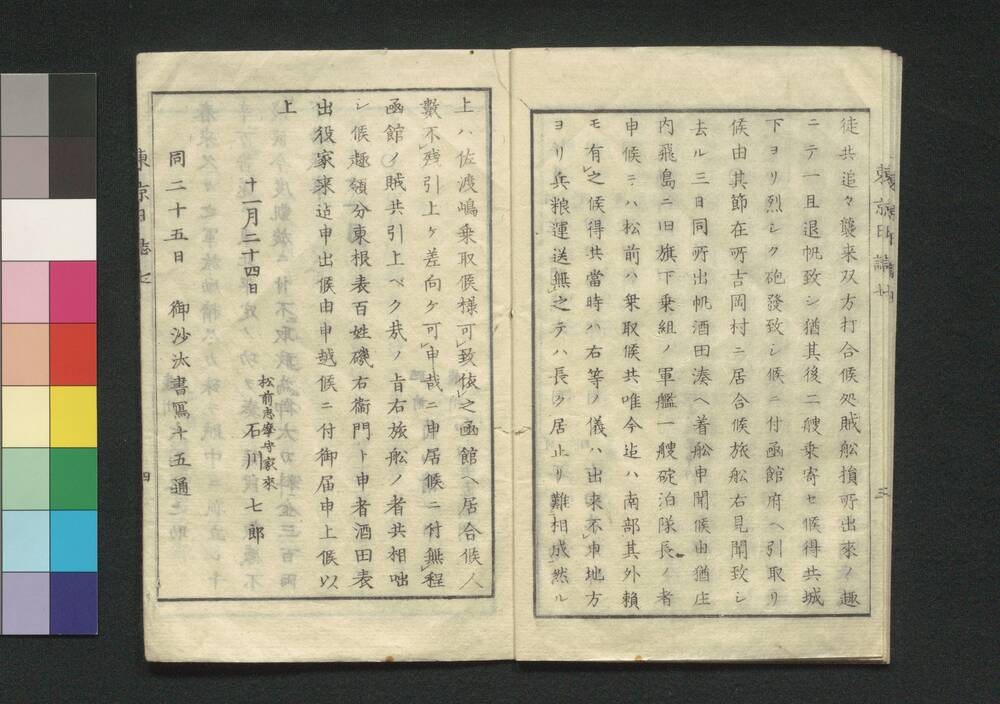 徒共追々襲来双方打合候処賊舩損所出來ノ趣
ニテ一旦退帆致シ猶其後二艘乗寄セ候得共城
下ヨリ烈シク砲發致シ候ニ付函館府ヘ引取リ
候由其節在所吉岡村ニ居合候旅舩右見聞致シ
去ル三日同所出帆酒田湊ヘ着舩申聞候由猶庄
内飛島ニ旧旗下乗組ノ軍艦一艘碇泊隊長ノ者
申候ニハ松前ハ乗取候共唯今迠ハ南部其外賴
モ有之候得共當時ハ右等ノ儀ハ出来不申地方
ヨリ兵粮運送無之テハ長ク居止リ難相成然ル
三
上ハ佐渡嶋乗取候様可致依之函館ヘ居合候人
數不残引上ケ差向ケ可申哉ニ申居候ニ付無程
函館ノ賊共引上ベク哉ノ旨右旅舩ノ者共相咄
シ候趣領分東根表百姓磯右衞門ト申者酒田表
出役家来迠申出候由申越候ニ付御届申上候以
上
十一月二十四日
松前志摩守家來
石川七郎
同二十五日 御沙汰書寫十五通
東京日誌
四